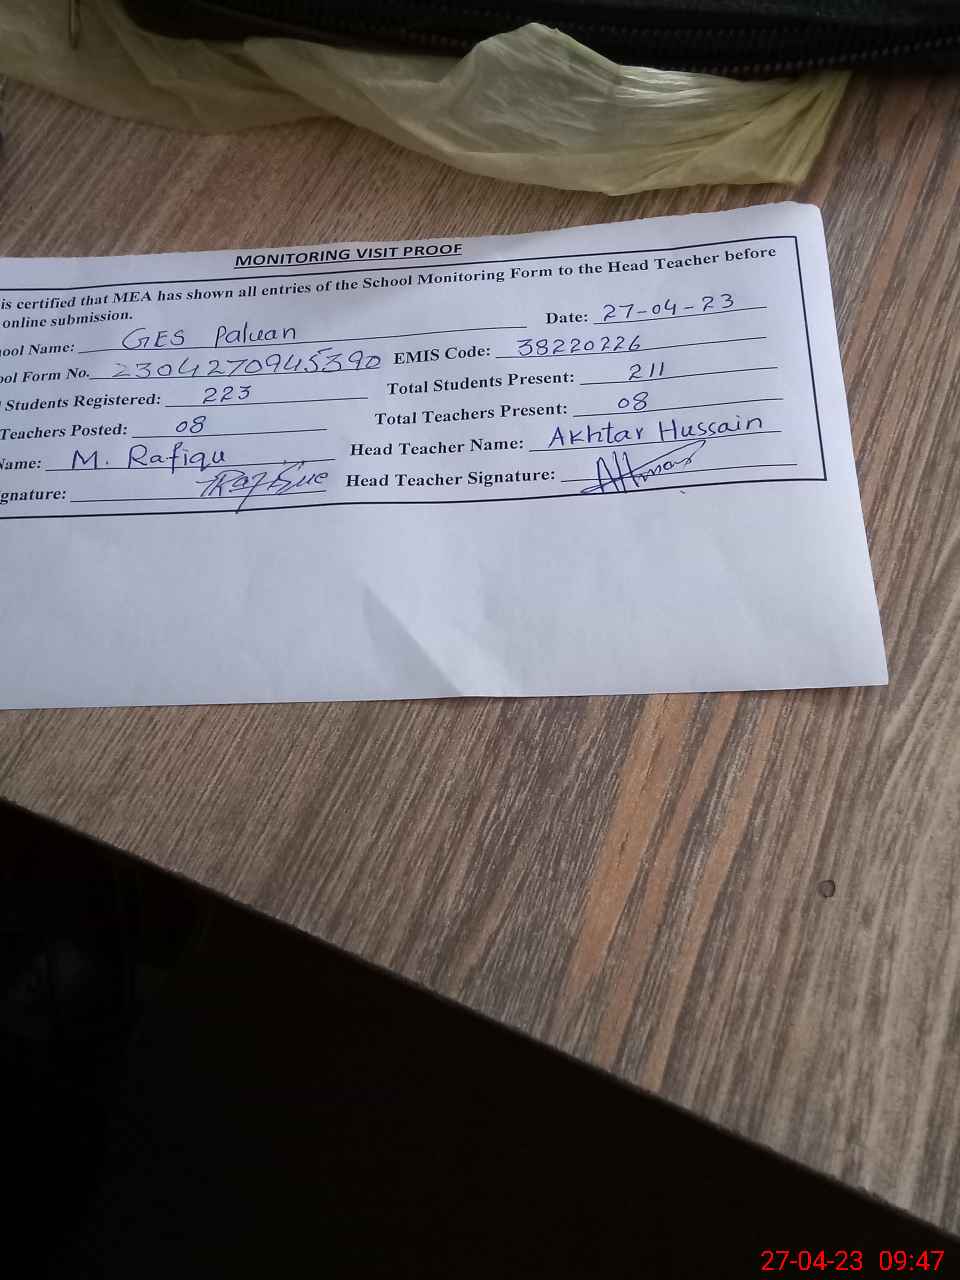 MONITORING VISIT PROOF
is certified that MEA has shown all entries of the School Monitoring Form to the Head Teacher before
online submission.
ool Name: GES Paluan Date: 27-04-23
ool Form No. 2304270945390 EMIS Code: 38220226
Students Registered: 223 Total Students Present: 211
Teachers Posted: 08 Total Teachers Present: 08
Name: M. Rafique Head Teacher Name: Akhtar Hussain
gnature: Head Teacher Signature:
27-04-23 09:47